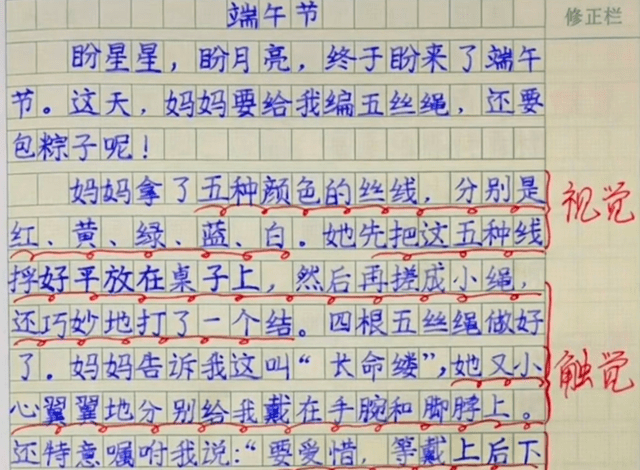 端午节
修正栏
盼星星，盼月亮，终于盼来了端午
节。这天，妈妈要给我编五丝绳，还要
包粽子呢！
妈妈拿了五种颜色的丝线，分别是
视觉
红、黄、绿、蓝、白。她先把这五种线
捋好平放在桌子上，然后再搓成小绳，
还巧妙地打了一个结。四根五丝绳做好
了。妈妈告诉我这叫“长命缕”，她又小
触觉
心翼翼地分别给我戴在手腕和脚脖上。
还特意嘱咐我说：“要爱惜，等戴上后下